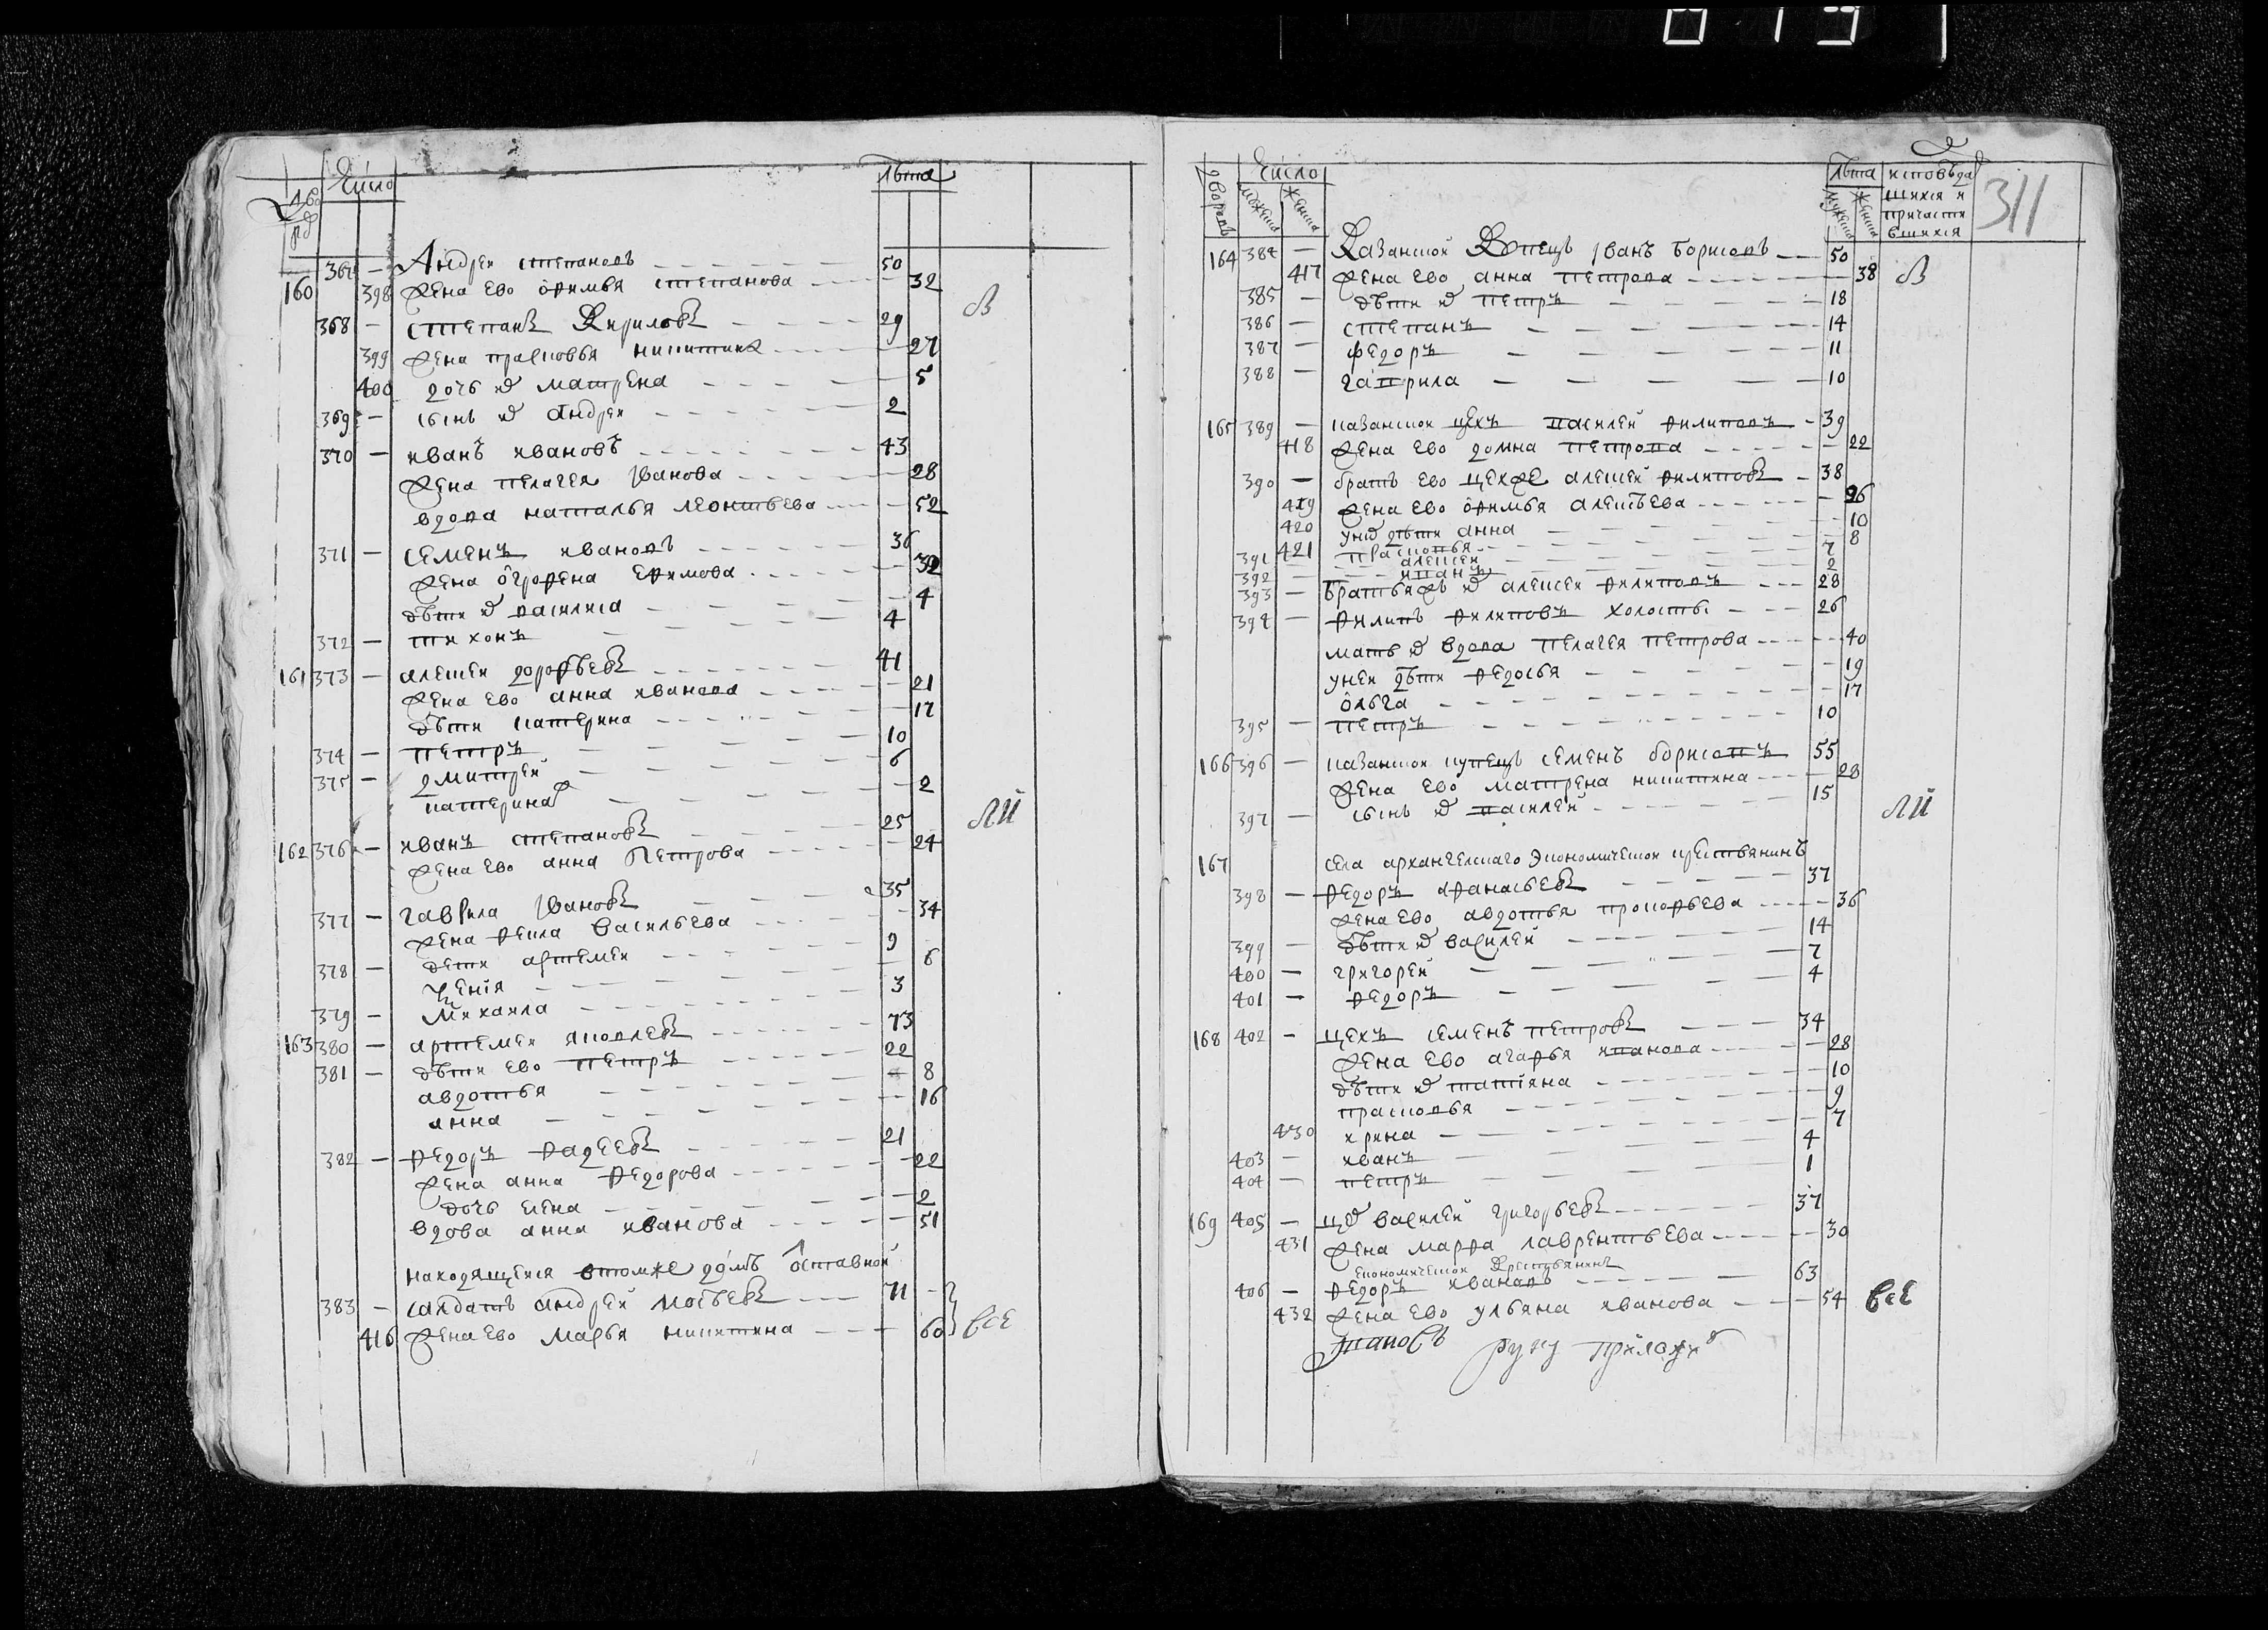 819
Дво ров
Число
Лѣта
367 — Андреи степановъ 50
160 398 жена ево офимья степанова 32
В
368 — степанъ Кириловъ 29
399 жена прасковья никитина 27
400 дочь их матрена 5
369 — сынъ их андреи 2
370 — иванъ ивановъ 43
жена пелагея Иванова 28
вдова наталья леонтьева 52
371 — семенъ ивановъ 36
жена огрофена ефимова 32
дѣти их василиса 4
372 — тихонъ 4
161 373 — алексеи дорофѣевъ 41
жена ево анна иванова 21
дѣти катерина 17
374 — петръ 10
375 — дмитреи 6
катерина 2
ли
162 376 — иванъ степановъ 25
жена ево анна Петрова 24
377 — гаврила Ивановъ 35
жена фекла васильева 34
378 — дети артемеи 9
6
379 — михаила 3
163 380 — артемеи яковлевъ 73
381 — дѣти ево петръ 22
авдотья 8
анна 16
382 — федоръ фадеевъ 21
жена анна федорова 22
дочь елена 2
вдова анна иванова 51
находящеися втомже домѣ отставной
383 — салдатъ андреи 71
416 жена ево марья никитина 60
все
311
дворовъ
Число
мужеска
женска
Лѣта
мужеска
женска
исповѣда
шихся и
причасти
вшихся
164 384 — Казанской Купецъ Иванъ борисовъ 50
417 жена ево анна петрова 38
В
385 — дѣти их петръ 18
386 — степанъ 14
387 — федоръ 11
388 — гаврила 10
165 389 — казанскои цехъ василеи филиповъ 39
418 жена ево домна петрова 22
390 — братъ ево цехже алексеи филиповъ 38
419 жена ево офимья алексѣева 26
420 уних дѣти анна 10
421 прасковья 8
391 алексеи 7
392 — иванъ 2
393 — братья их алексеи филиповъ 28
394 — филипъ филиповъ холосты 26
мать их вдова пелагея петрова 40
унеи дѣти федосья 19
ольга 17
395 — петръ 10
166 396 — казанскои купецъ семенъ борисовъ 55
жена ево матрена никитина 28
397 — сынъ их василеи 15
ли
167 села архангелского экономическои крестьянинъ
398 — федоръ афанасьевъ 37
жена ево авдотья прокофьева 36
399 — дѣти их василеи 14
400 — григореи 7
401 — федоръ 4
168 402 — цехъ семенъ петровъ 34
жена ево агафья иванова 28
дѣти их татияна 10
прасковья 9
430 ирина 7
403 — иванъ 4
404 — петръ 1
169 405 — цех василеи григорьевъ 37
431 жена марфа лаврентьева 30
економическои Крестьянинъ
406 — федоръ ивановъ 63
432 жена ево ульяна иванова 54
все
руку приложи